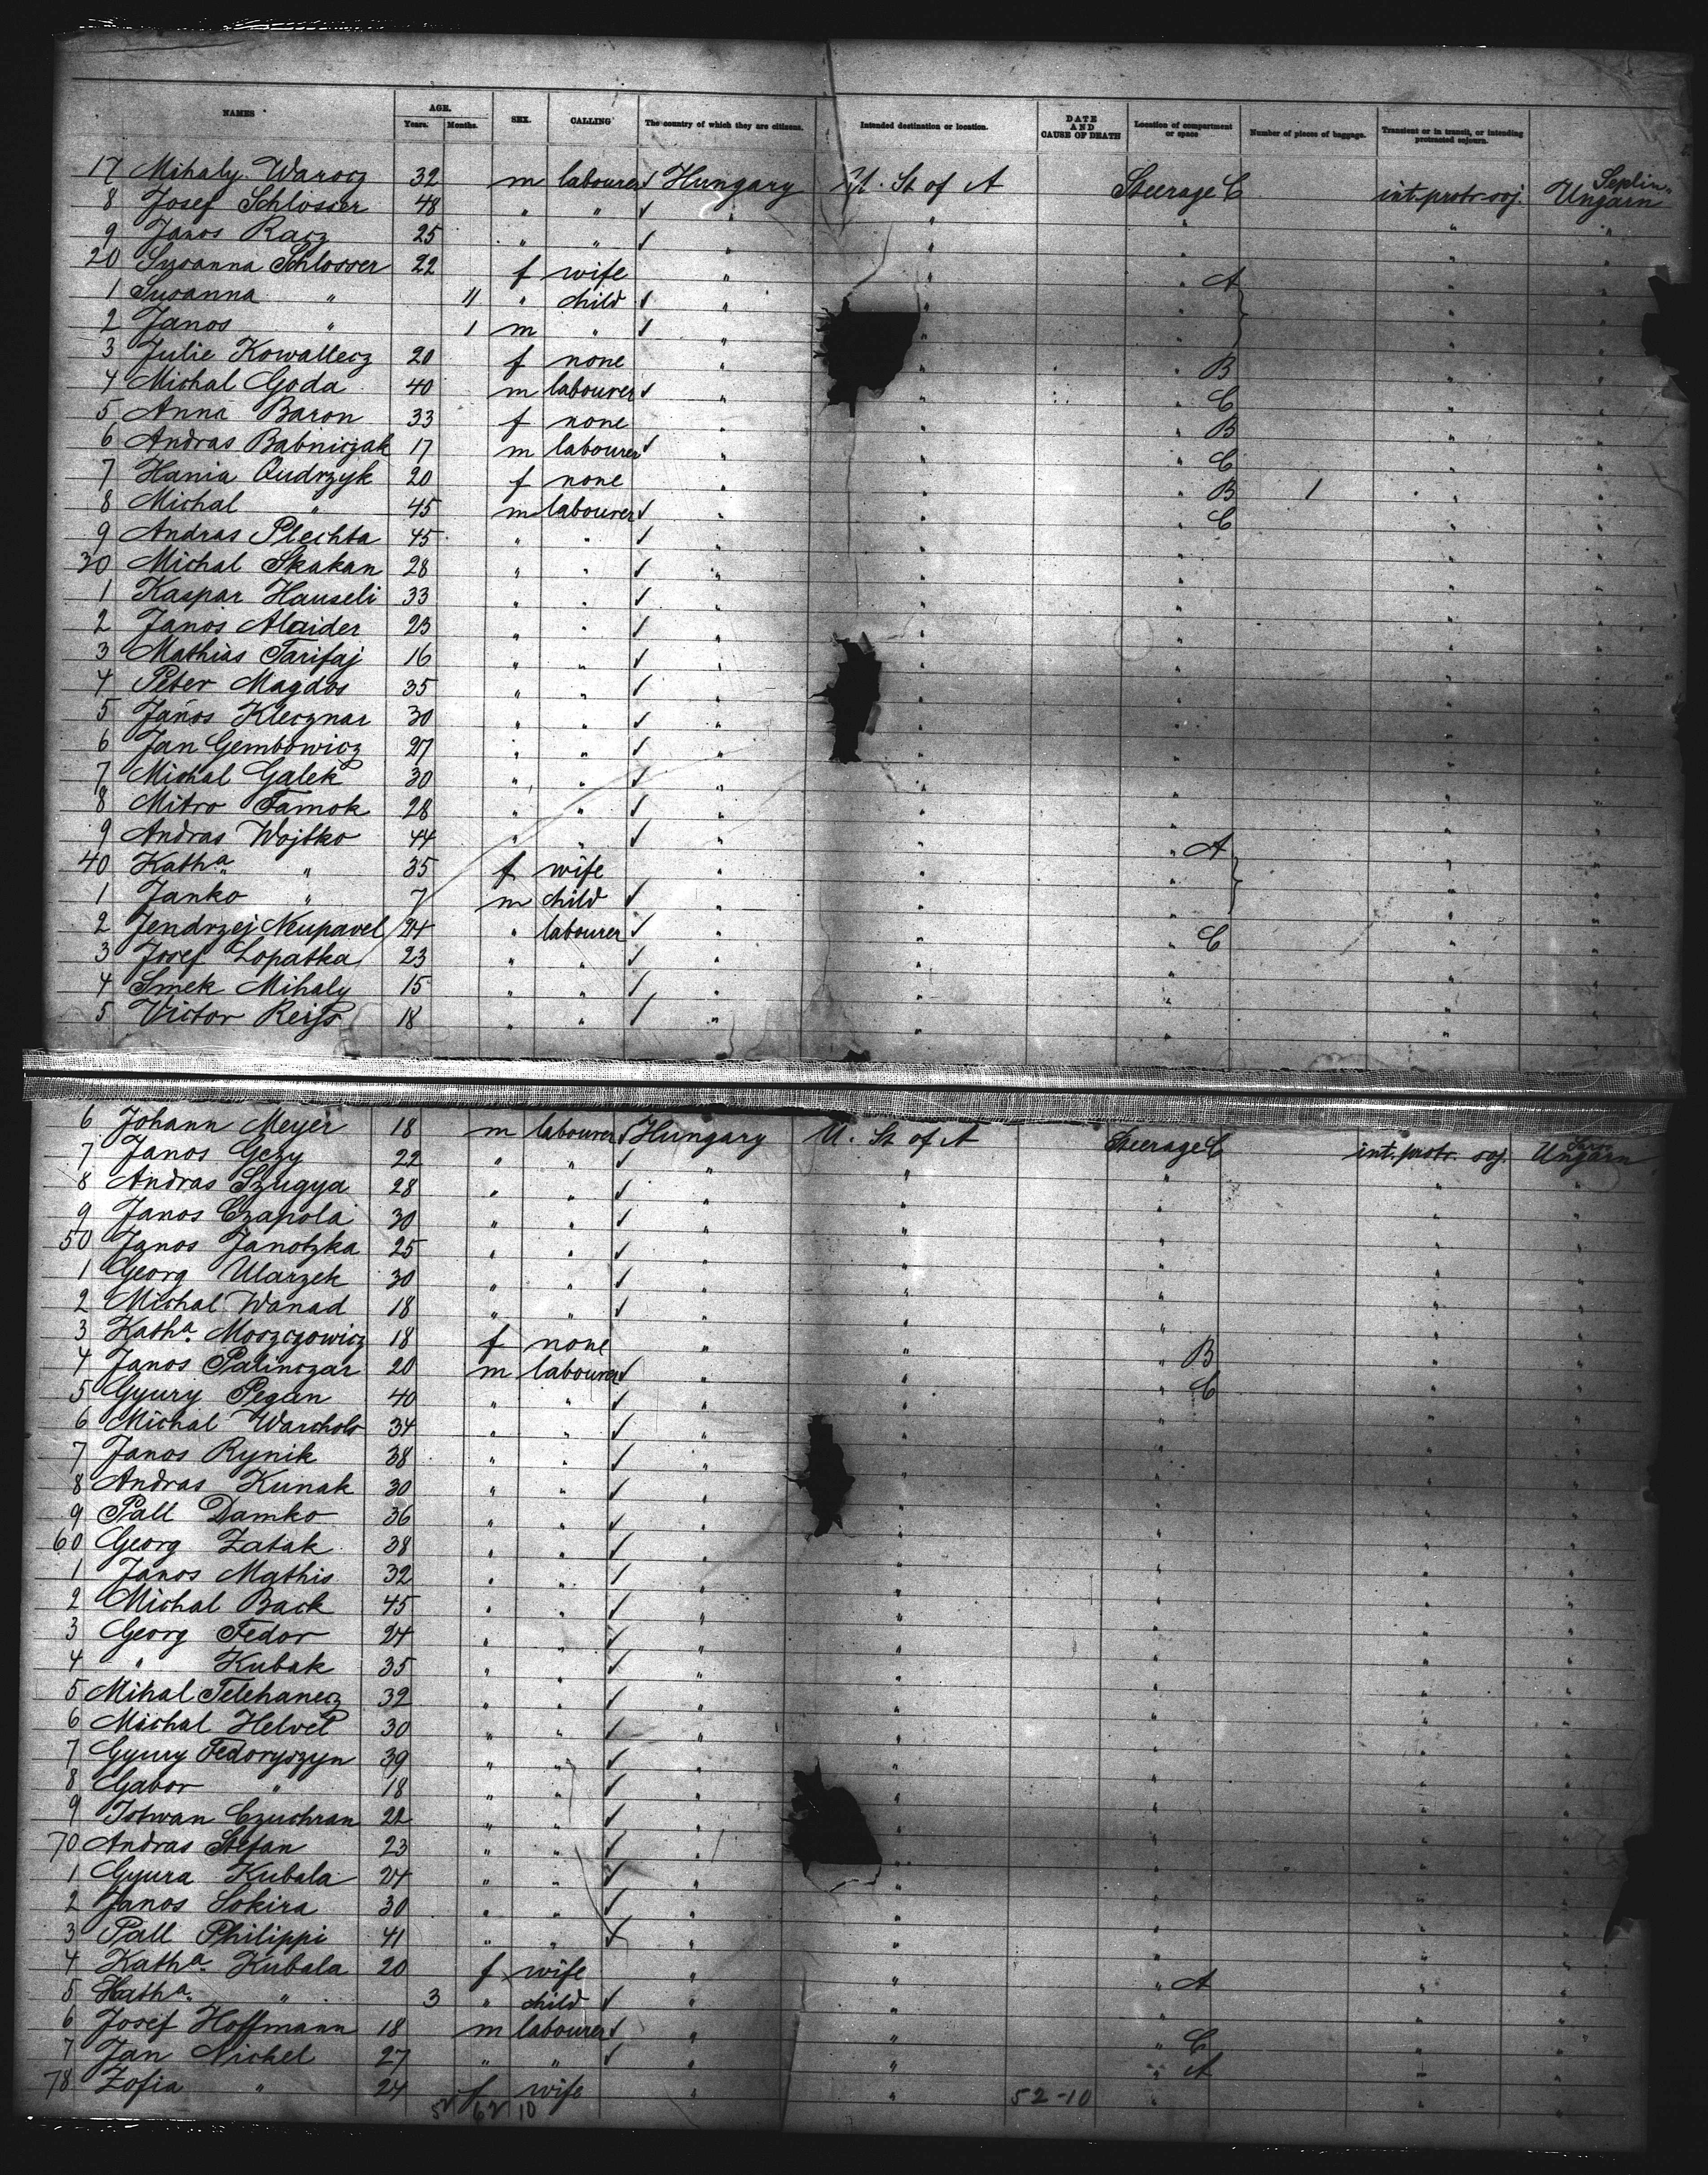 NAMES AGE. Years. Months. SEX. CALLING The country of which they are citizens. Intended destination or location. DATE AND CAUSE OF DEATH Location of compartment or space Number of pieces of baggage. Transient or in transit, or intending protracted sojourn.
17 Mihaly Warocz 32 m labourer ✓ Hungary U. St of A Steerage C int. protr. soj. Ungarn
8 Josef Schlosser 48 " " ✓ " " " " "
9 Janos Racz 25 " " ✓ " " " " "
20 Susanna Schlosser 22 f wife " " " A " "
1 Susanna " 11 " child ✓ " " " " "
2 Janos " 1 m " ✓ " " " " "
3 Julie Kowallecz 20 f none " " " B " "
4 Michal Goda 40 m labourer ✓ " " " C " "
5 Anna Baron 33 f none " " " B " "
6 Andras Babniczak 17 m labourer ✓ " " " C " "
7 Hania Qudrzyk 20 f none " " " B 1 " "
8 Michal " 45 m labourer ✓ " " " C " "
9 Andras Plechta 45 " " ✓ " " " " "
30 Michal Skakan 28 " " ✓ " " " " "
1 Kaspar Hauseli 33 " " ✓ " " " " "
2 Janos Alaider 23 " " ✓ " " " " "
3 Mathias Tarifaj 16 " " ✓ " " " " "
4 Peter Magdos 35 " " ✓ " " " " "
5 Janos Klecznar 30 " " ✓ " " " " "
6 Jan Gembowicz 27 " " ✓ " " " " "
7 Michal Galek 30 " " ✓ " " " " "
8 Mitro Tamok 28 " " ✓ " " " " "
9 Andras Wojtko 44 " " ✓ " " " A " "
40 Katha. " 35 f wife " " " " "
1 Janko " 7 m child ✓ " " " " "
2 Jendrzej Neupavel 24 " labourer ✓ " " " C " "
3 Josef Lopatka 23 " " ✓ " " " " "
4 Smek Mihaly 15 " " ✓ " " " " "
5 Victor Reiss 18 " " ✓ " " " " "
6 Johann Meyer 18 m labourer ✓ Hungary U. St of A Steerage C int. protr. soj. Ungarn
7 Janos Gezy 22 " " ✓ " " " " "
8 Andras Szugya 28 " " ✓ " " " " "
9 Janos Czapola 30 " " ✓ " " " " "
50 Janos Janotzka 25 " " ✓ " " " " "
1 Georg Ularzek 30 " " ✓ " " " " "
2 Michal Wanad 18 " " ✓ " " " " "
3 Katha. Moszczowicz 18 f none " " " B " "
4 Janos Palinczar 20 m labourer ✓ " " " C " "
5 Gyury Pegan 40 " " ✓ " " " " "
6 Michal Warchols 34 " " ✓ " " " " "
7 Janos Rynik 38 " " ✓ " " " " "
8 Andras Kunak 30 " " ✓ " " " " "
9 Pall Damko 36 " " ✓ " " " " "
60 Georg Zatak 38 " " ✓ " " " " "
1 Janos Mathis 32 " " ✓ " " " " "
2 Michal Back 45 " " ✓ " " " " "
3 Georg Fedor 24 " " ✓ " " " " "
4 " Kubak 35 " " ✓ " " " " "
5 Mihal Telehanecz 32 " " ✓ " " " " "
6 Michal Helvet 30 " " ✓ " " " " "
7 Gyury Fedoryszyn 39 " " ✓ " " " " "
8 Gabor " 18 " " ✓ " " " " "
9 Istwan Czuchran 22 " " ✓ " " " " "
70 Andras Stefan 23 " " ✓ " " " " "
1 Gyura Kubala 24 " " ✓ " " " " "
2 Janos Sokira 30 " " ✓ " " " " "
3 Pall Philippi 41 " " ✓ " " " " "
4 Katha. Kubala 20 f wife " " " A " "
5 Katha. " 3 " child ✓ " " " " "
6 Josef Hoffmann 18 m labourer ✓ " " " C " "
7 Jan Nickel 27 " " ✓ " " " A " "
78 Zofia " 24 f wife " " " " "
52 62 10 52-10